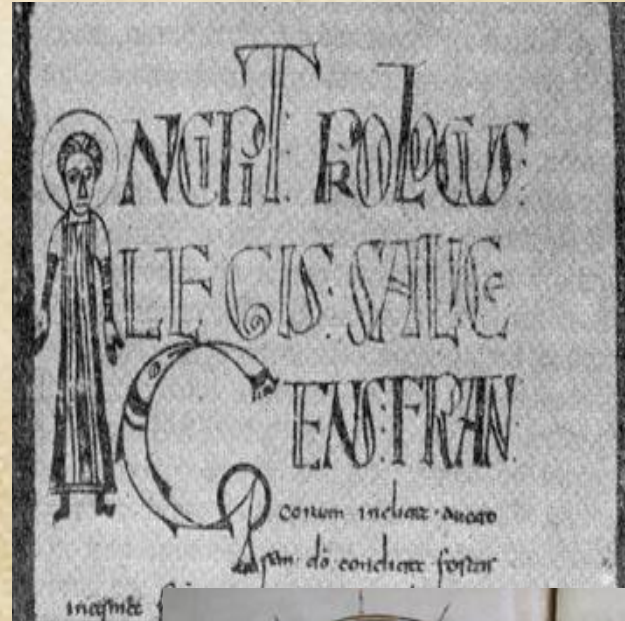 INCIPIT PROLOGUS:
LEGIS: SALICE
GENS: FRAN:
corum inclita · aucto
dõ fortis